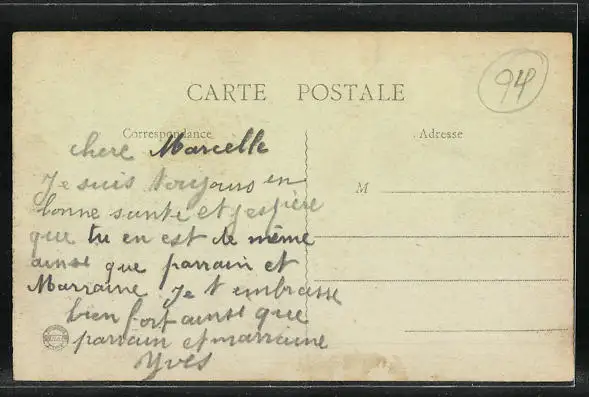 94
CARTE POSTALE
Correspondance
Adresse
chere Marcelle
Je suis toujours en
bonne sante et j'espère
que tu en est de même
ainsi que parrain et
Marraine Je t embrasse
bien fort ainsi que
parrain et marraine
Yves
M